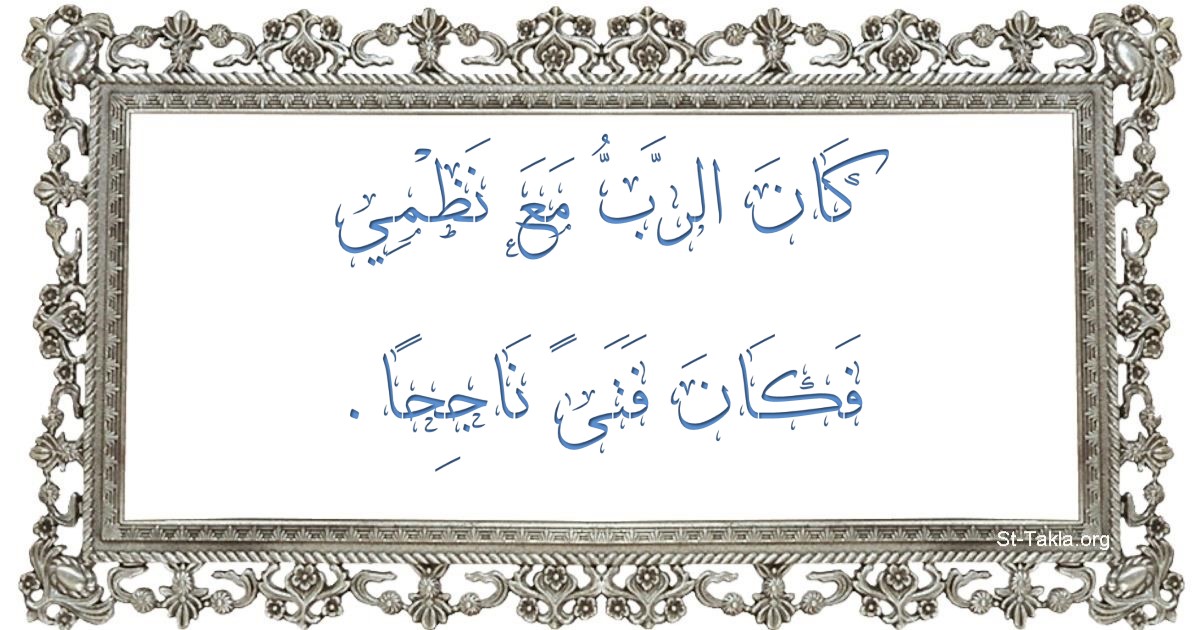 كَانَ الرَّبُّ مَعَ نَظْمِي
فَكَانَ فَتَىً نَاجِحًا .
St-Takla.org